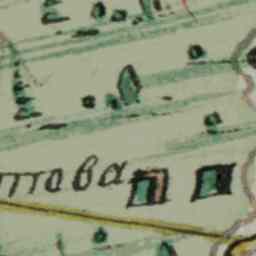 това